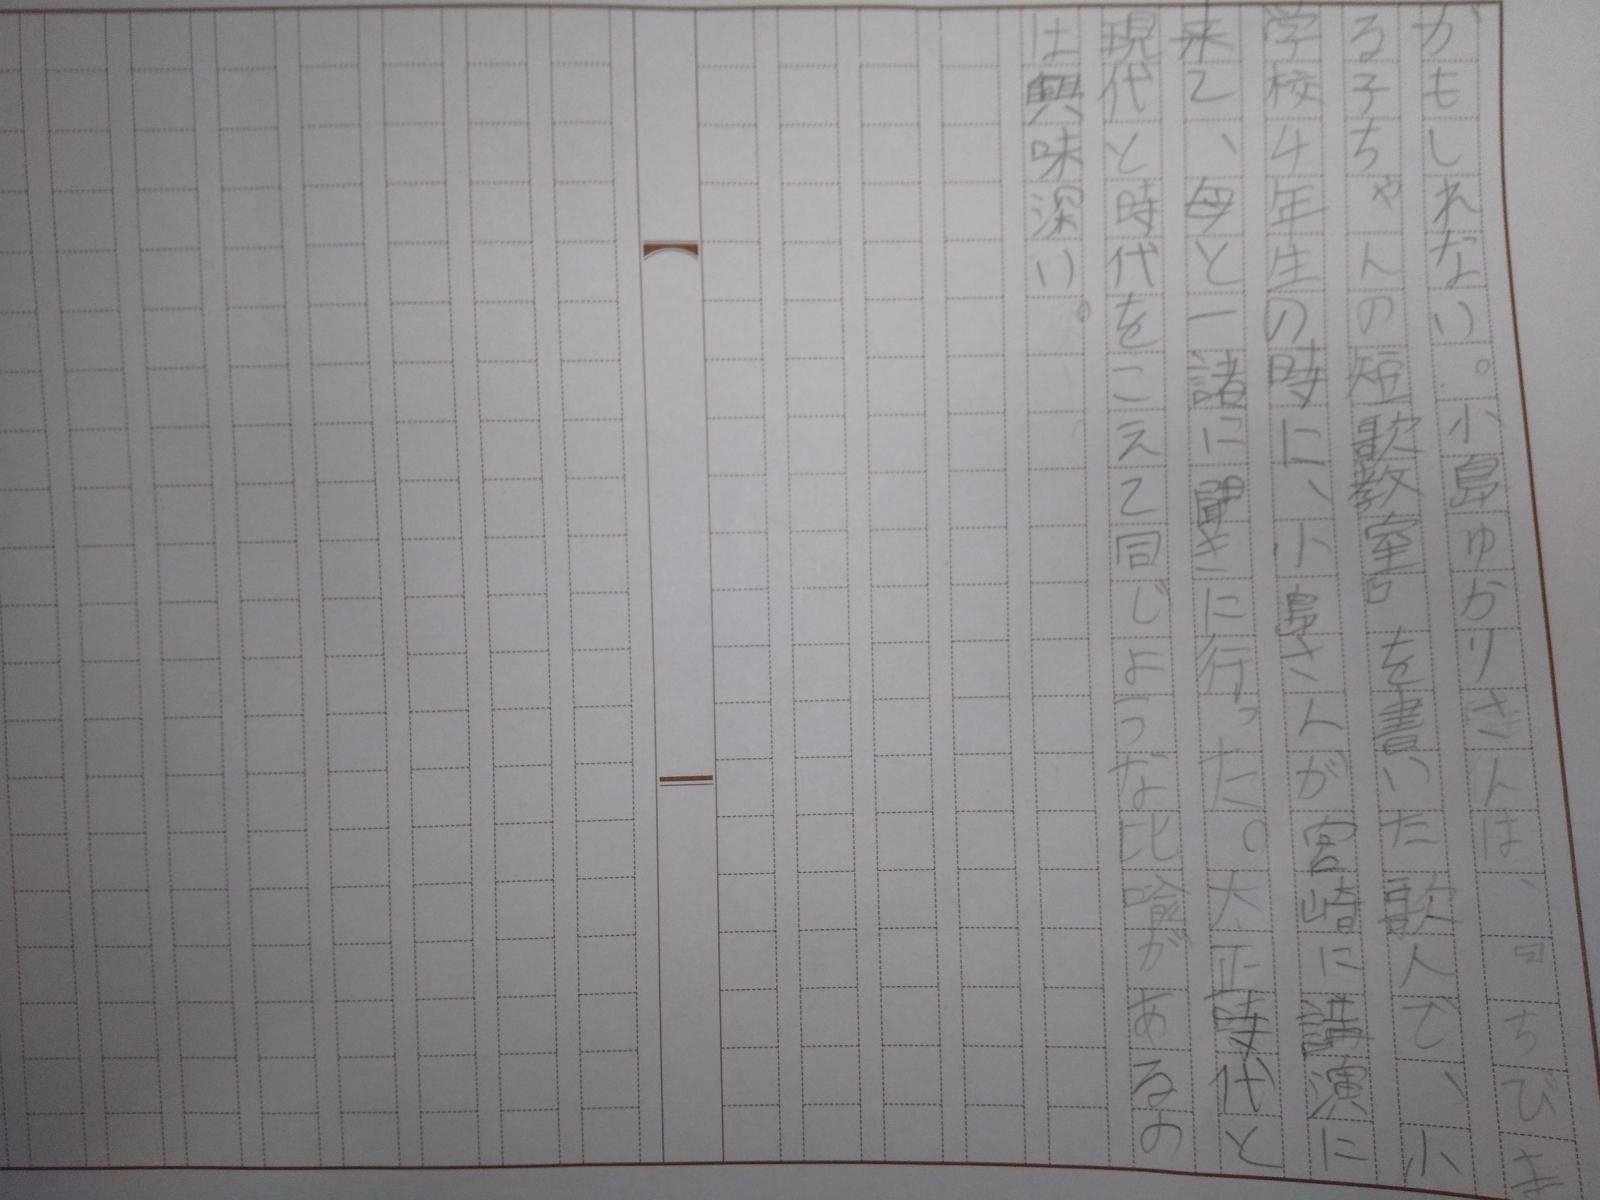 かもしれない。小島ゆかりさんは、『ちびま
る子ちゃんの短歌教室』を書いた歌人で、小
学校4年生の時に、小島さんが宮崎に講演に
来て、母と一諸に聞きに行った。大正時代と
現代と時代をこえて同じような比喩があるの
は興味深い。